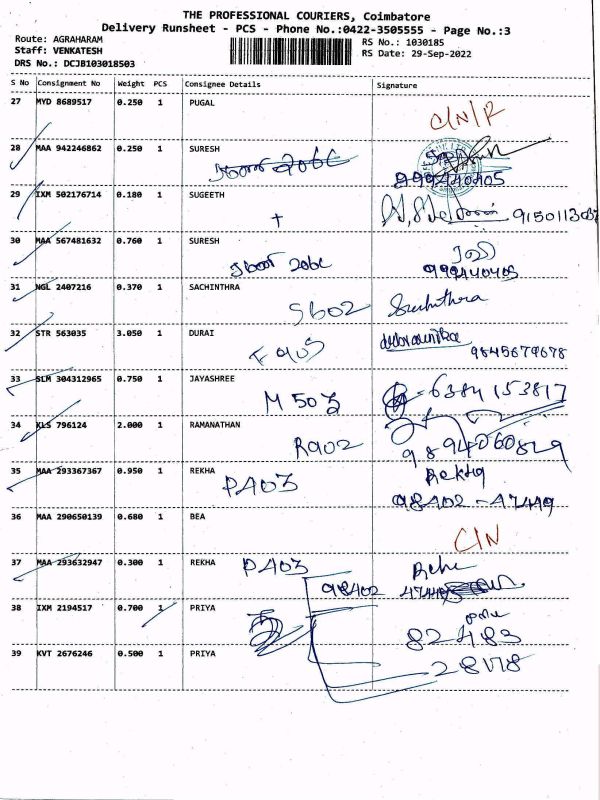 THE PROFESSIONAL COURIERS, Coimbatore
Delivery Runsheet - PCS - Phone No.:0422-3505555 - Page No.:3
Route: AGRAHARAM
RS No.: 1030185
Staff: VENKATESH
RS Date: 29-Sep-2022
DRS No.: DCJB103018503
S No Consignment No Weight PCS Consignee Details Signature
27 MYD 8689517 0.250 1 PUGAL
C/N/R
28 MAA 942246862 0.250 1 SURESH
29 IXM 502176714 0.180 1 SUGEETH
30 MAA 567481632 0.760 1 SURESH
999440405
31 NGL 2407216 0.370 1 SACHINTHRA
SB02 Suchithra
32 STR 563035 3.050 1 DURAI
F 903
9845679678
33 SLM 304312965 0.750 1 JAYASHREE
M 503 6384 153817
34 KLS 796124 2.000 1 RAMANATHAN
R902 9894060829
35 MAA 293367367 0.950 1 REKHA
PA03 Rekha
98402-47449
36 MAA 290650139 0.680 1 BEA
C/N
37 MAA 293632947 0.300 1 REKHA
PA03
98402
38 IXM 2194517 0.700 1 PRIYA
82483
39 KVT 2676246 0.500 1 PRIYA
28178